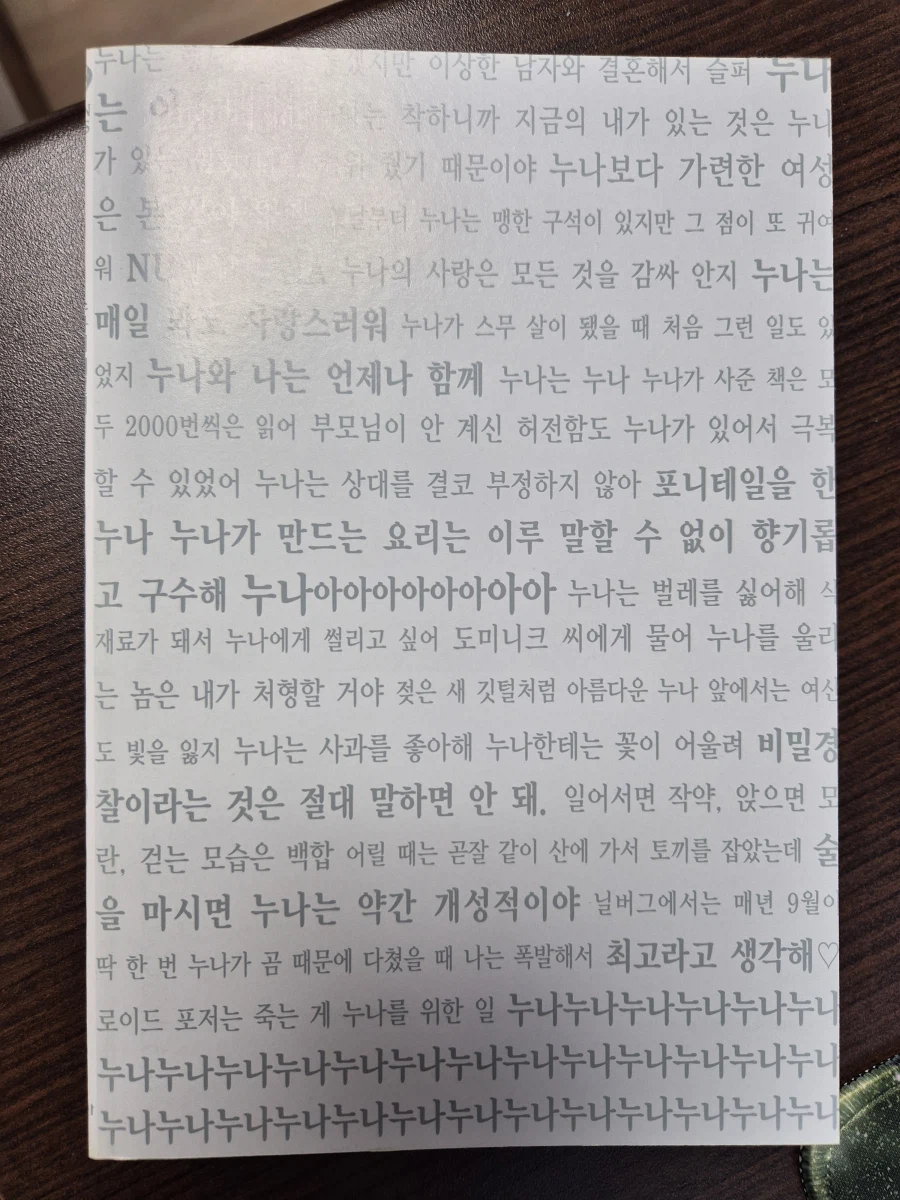 누나는 이상한 남자와 결혼해서 슬퍼 누나
는 착하니까 지금의 내가 있는 것은 누나
가 줬기 때문이야 누나보다 가련한 여성
은 누나는 맹한 구석이 있지만 그 점이 또 귀여
워 누나의 사랑은 모든 것을 감싸 안지 누나는
매일 봐도 사랑스러워 누나가 스무 살이 됐을 때 처음 그런 일도 있
었지 누나와 나는 언제나 함께 누나는 누나 누나가 사준 책은 모
두 2000번씩은 읽어 부모님이 안 계신 허전함도 누나가 있어서 극복
할 수 있었어 누나는 상대를 결코 부정하지 않아 포니테일을 한
누나 누나가 만드는 요리는 이루 말할 수 없이 향기롭
고 구수해 누나아아아아아아아아 누나는 벌레를 싫어해 식
재료가 돼서 누나에게 썰리고 싶어 도미니크 씨에게 물어 누나를 울리
는 놈은 내가 처형할 거야 젖은 새 깃털처럼 아름다운 누나 앞에서는 여신
도 빛을 잃지 누나는 사과를 좋아해 누나한테는 꽃이 어울려 비밀경
찰이라는 것은 절대 말하면 안 돼. 일어서면 작약, 앉으면 모
란, 걷는 모습은 백합 어릴 때는 곧잘 같이 산에 가서 토끼를 잡았는데 술
을 마시면 누나는 약간 개성적이야 닐버그에서는 매년 9월이
딱 한 번 누나가 곰 때문에 다쳤을 때 나는 폭발해서 최고라고 생각해♡
로이드 포저는 죽는 게 누나를 위한 일 누나누나누나누나누나누나
누나누나누나누나누나누나누나누나누나누나누나누나누나
누나누나누나누나누나누나누나누나누나누나누나누나누나